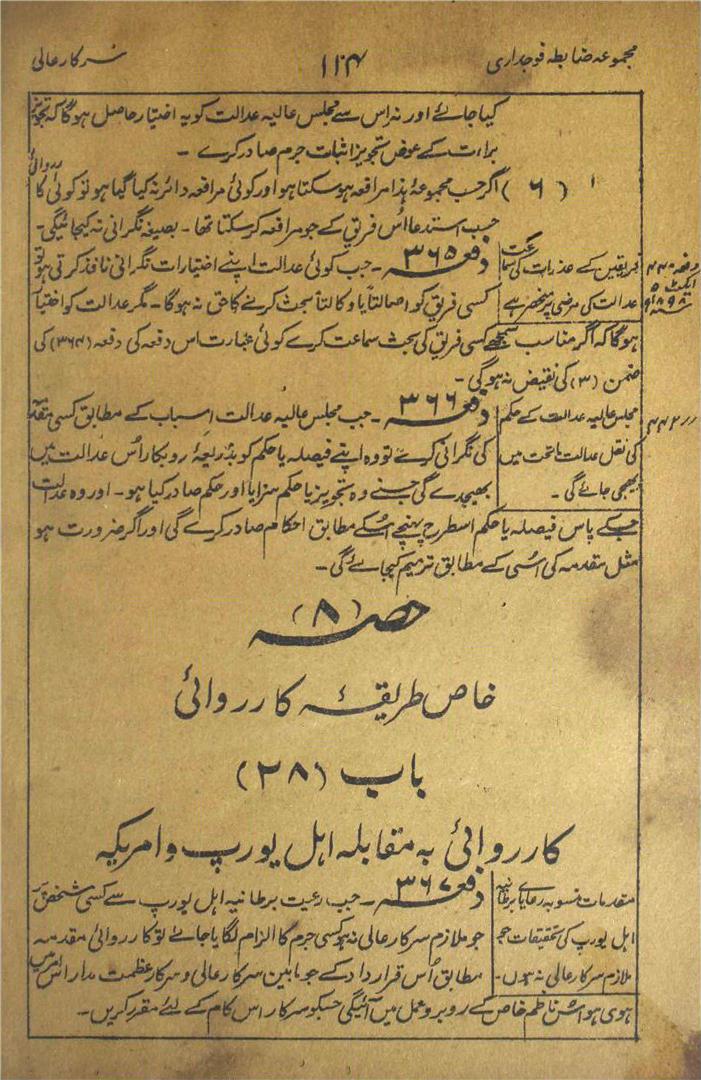 مجموعہ ضابطہ فوجداری ۱۲۴ سرکار عالی
کیا جائے اور نہ اس سے مجلس عالیہ عدالت کو یہ اختیار حاصل ہوگا کہ تجویز
براءت کے عوض تجویز اثبات جرم صادر کرے ۔
(۶) اگر حسب مجموعۂ ہذا مرافعہ ہوسکتا ہو اور کوئی مرافعہ دائر نہ کیا گیا ہو تو کوئی کارروائی
حسب استدعا اُس فریق کے جو مرافعہ کرسکتا تھا ۔ بصیغہ نگرانی نہ کیجائیگی ۔
فریقین کے عذرات کی سماعت
عدالت کی مرضی پر منحصر ہے
دفعہ ۴۴۰
ایکٹ ۵
۱۸۹۸
دفعہ ۳۶۵ ۔ جب کوئی عدالت اپنے اختیارات نگرانی نافذ کرتی ہو تو
کسی فریق کو اصالتاً یا وکالتاً بحث کرنے کا حق نہ ہوگا ۔ مگر عدالت کو اختیار
ہوگا کہ اگر مناسب سمجھے کسی فریق کی بحث سماعت کرے کوئی عبارت اس دفعہ کی دفعہ (۳۶۴) کی
ضمن (۳) کی نقیض نہ ہوگی ۔
مجلس عالیہ عدالت کے حکم
کی نقل عدالت ماتحت میں
بھیجی جائے گی ۔
〃 ۴۴۲
دفعہ ۳۶۶ ۔ جب مجلس عالیہ عدالت اس باب کے مطابق کسی مقدمہ
کی نگرانی کرے تو وہ اپنے فیصلہ یا حکم کو بذریعۂ روبکار اُس عدالت میں
بھیجدے گی جسنے وہ تجویز یا حکم سزا یا اور حکم صادر کیا ہو ۔ اور وہ عدالت
جسکے پاس فیصلہ یا حکم اسطرح پہنچے اُسکے مطابق احکام صادر کرے گی اور اگر ضرورت ہو
مثل مقدمہ کی اُسی کے مطابق ترمیم کیجائے گی ۔
حصہ (۸)
خاص طریقۂ کارروائی
باب (۲۸)
کارروائی بہ مقابلہ اہل یورپ و امریکہ
مقدمات منسوبہ رعایا برطانیہ
اہل یورپ کی تحقیقات جو
ملازم سرکار عالی نہ ہوں ۔
دفعہ ۳۶۷ ۔ جب رعیت برطانیہ اہل یورپ سے کسی شخص پر
جو ملازم سرکار عالی نہ ہو کسی جرم کا الزام لگایا جائے تو کارروائی مقدمہ
مطابق اُس قرارداد کے جو مابین سرکار عالی و سرکار عظمت مدار اس میں
ہوی ہو اُسن ناظم خاص کے روبرو عمل میں آئیگی جسکو سرکار اس کام کے لئے مقرر کریں ۔